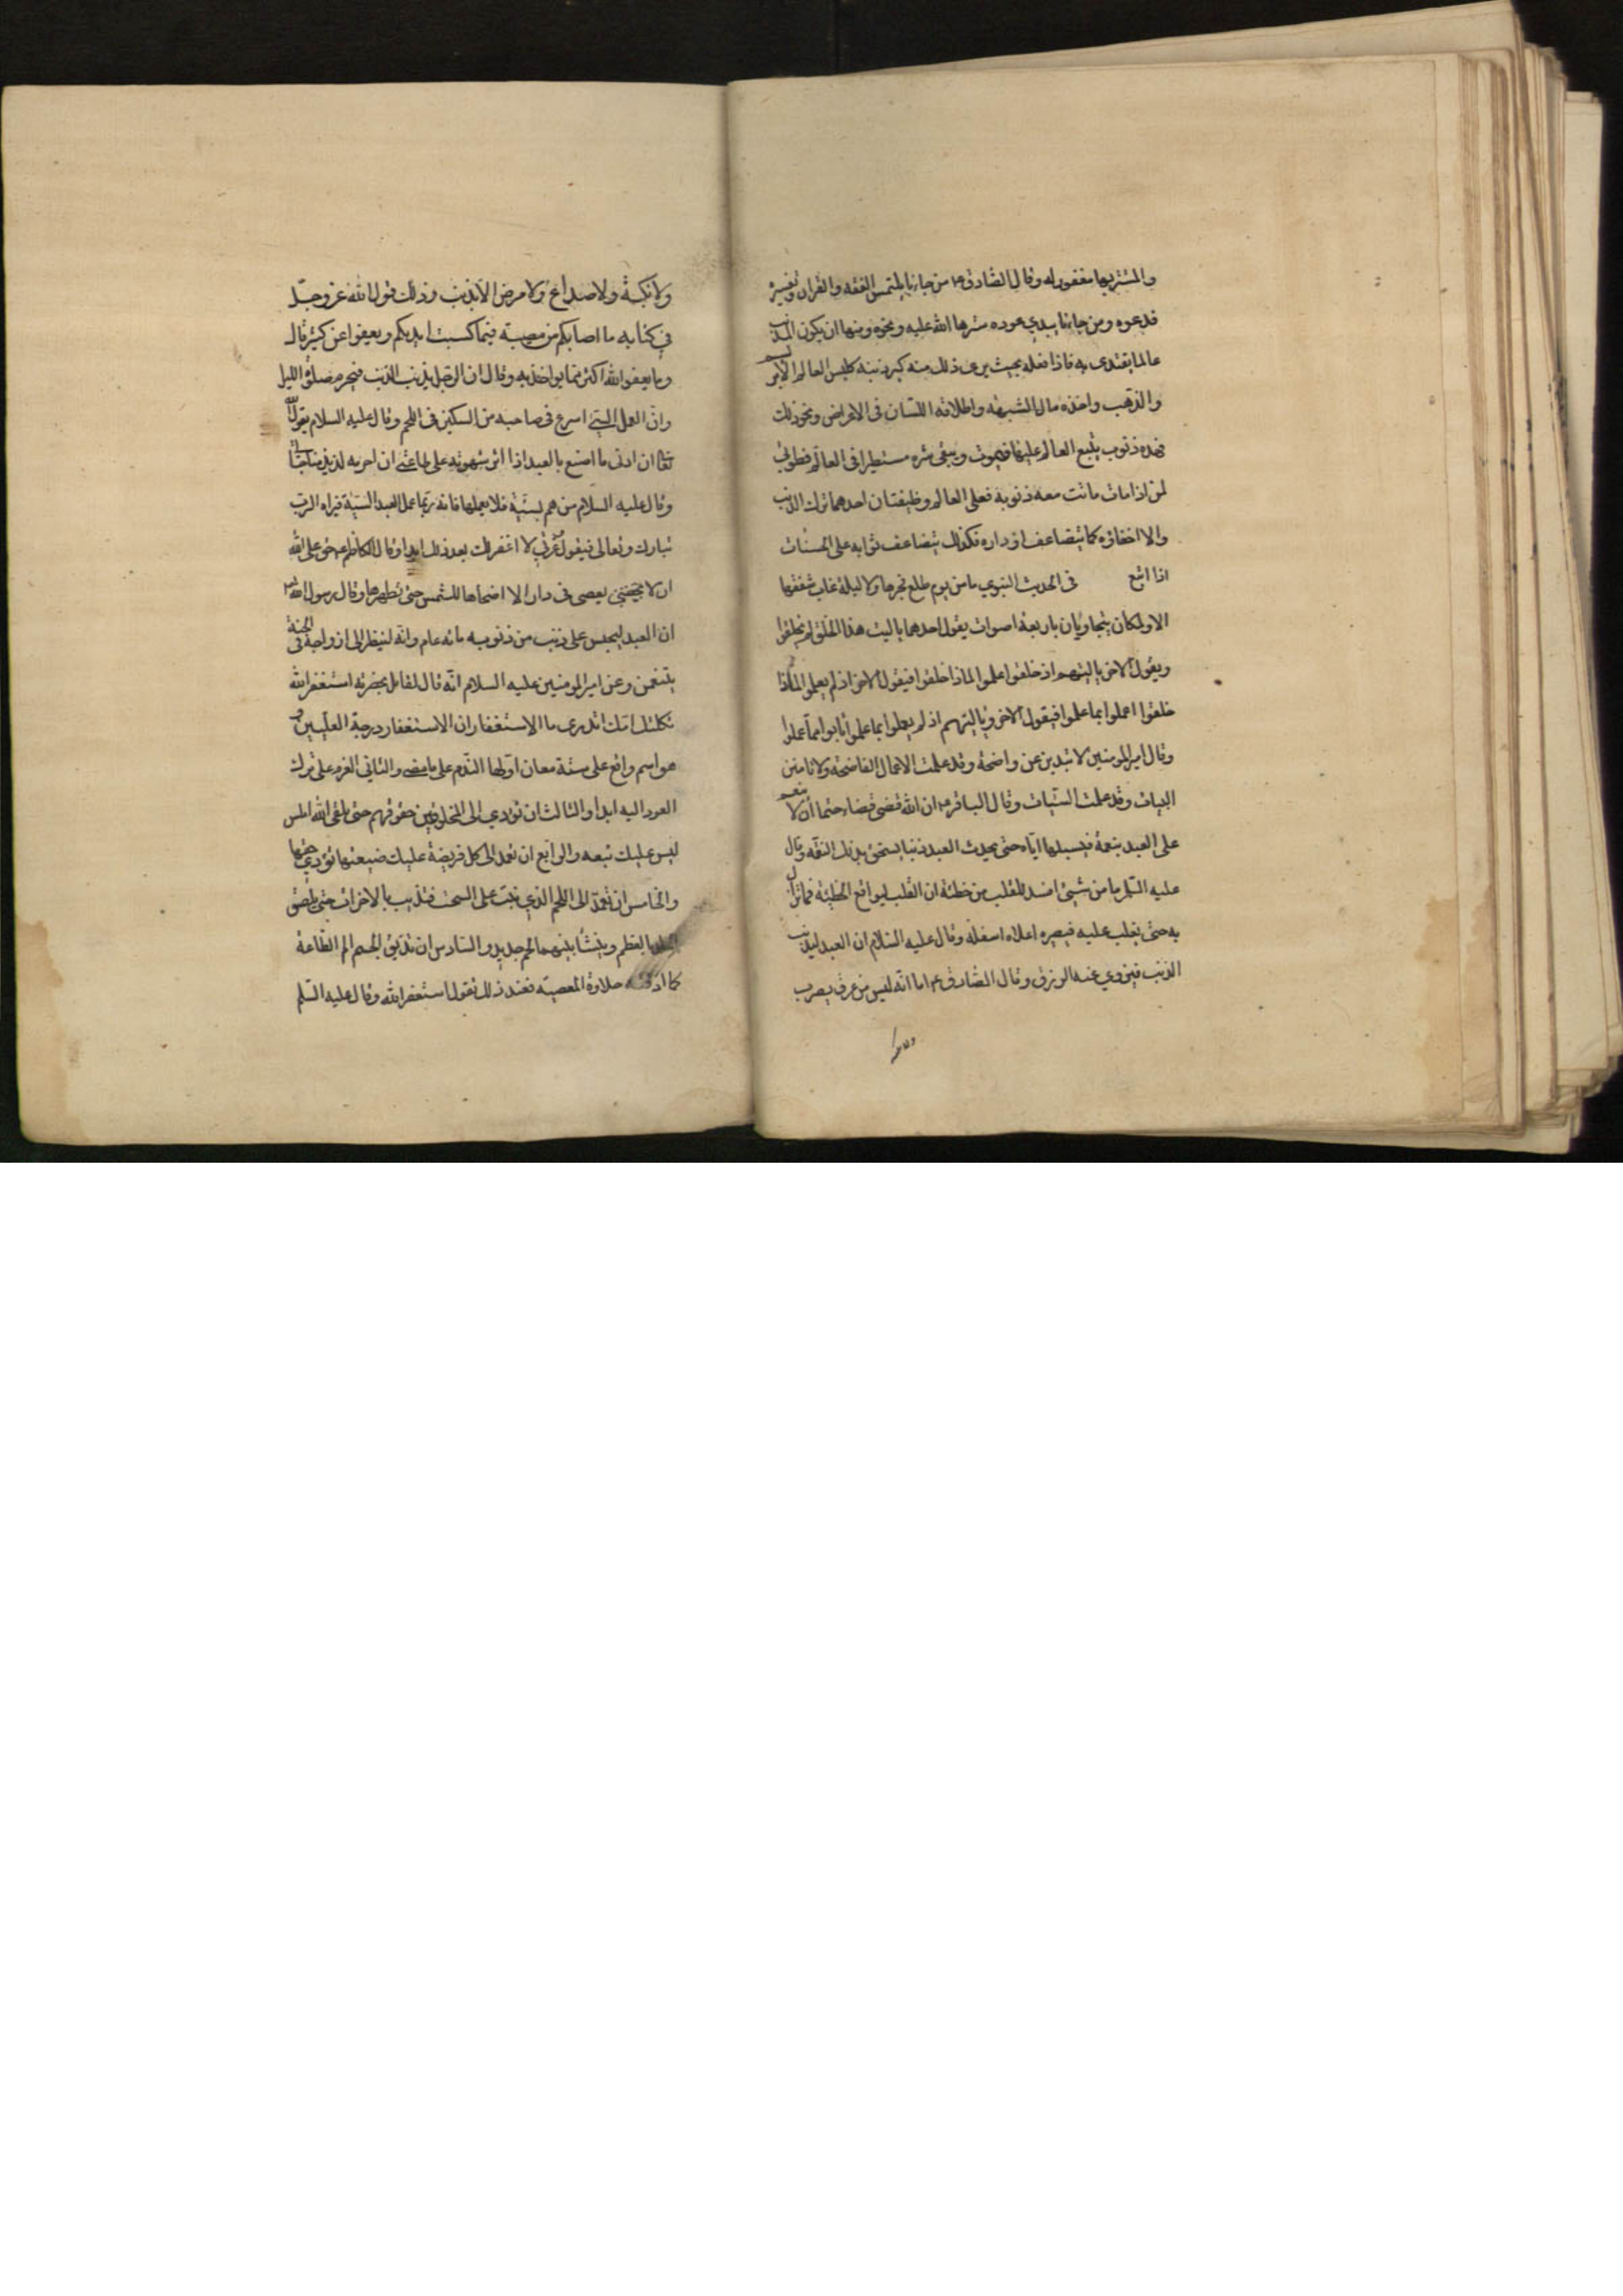 والمستتر بها مغفور له وقال الصادق ع من جاءنا يلتمس الفقه والقران وتفسيره
فدعوه ومن جاءنا يبدي عوده سترها الله عليه ونحوه ومنها ان يكون المذنب
عالما يقتدى به فاذا فعله بحيث يرى ذلك منه كبر ذنبه كلبس العالم الابريسم
والذهب واخذه مال الشبهة واطلاقه اللسان في الاعراض ونحو ذلك
فهذه ذنوب يتبع العالم عليها فيموت ويبقى شره مستطيرا في العالم فطوبى
لمن اذا مات ماتت معه ذنوبه فعلى العالم وظيفتان احدهما ترك الذنب
والا اخفاؤه كما يتضاعف اوزاره فكذلك يتضاعف ثوابه على الحسنات
اذا اتبع في الحديث النبوي ما من يوم طلع فجرها ولا ليلة غاب شفقها
الا وملكان يتجاوبان باربعة اصوات يقول احدهما يا ليت هذا الخلق لم يخلقوا
ويقول الاخر يا ليتهم اذ خلقوا علموا لماذا خلقوا فيقول الاخر اذ لم يعلموا لماذا
خلقوا اعملوا بما علموا فيقول الاخر ويا ليتهم اذ لم يعملوا بما علموا تابوا مما عملوا
وقال امير المومنين لا تبدين عن واضحة وقد علمت الاعمال الفاضحة ولا تامنن
البيات وقد عملت السيات وقال الباقر ع ان الله قضى قضاء حتما ان لا ينعم
على العبد بنعمة فيسبلها اياه حتى يحدث العبد ذنبا يستحق بذلك النقمه وقال
عليه السلم ما من شيئ افسد للقلب من خطئة ان القلب ليواقع الخطيئة فما تزال
به حتى يغلب عليه فيصيره اعلاه اسفله وقال عليه السلام ان العبد ليذنب
الذنب فيزوي عنه الرزق وقال الصادق ع اما انه ليس من عرق يضرب
ولا نكبة ولا صداع ولا مرض الا بذنب وذلك قول الله عز وجل
في كتابه ما اصابكم من مصيبة فيما كسبت ايديكم ويعفوا عن كثير قال
وما يعفو الله اكثر مما يواخذ به وقال ان الرجل يذنب الذنب فيحرم صلوة الليل
وان العمل السيئ اسرع في صاحبه من السكين في اللحم وقال عليه السلام يقول الله
تعالى ان ادنى ما اصنع بالعبد اذا اثر شهوته على طاعتي ان احرمه لذيذ مناجاتي
وقال عليه السلام من هم بسيئة فلا يعملها فانه ربما عمل العبد السيئة فيراه الرب
تبارك وتعالى فيقول وعزتي لا اغفر لك بعد ذلك ابدا وقال الكاظم ع حق على الله
ان لا يعصى في دار الا اضحاها للشمس حتى تطهرها وقال رسول الله
ان العبد ليحبس على ذنب من ذنوبه مائه عام وانه لينظر الى ازواجه في الجنة
يتنعمن وعن امير المومنين عليه السلام انه قال لقائل بحضرته استغفر الله
ثكلتك امك اتدرى ما الاستغفار ان الاستغفار درجة العليين و
هو اسم واقع على ستة معان اولها الندم على ما مضى والثاني العزم على ترك
العود اليه ابدا والثالث ان تؤدي الى المخلوقين حقوقهم حتى تلقى الله املس
ليس عليك تبعه والرابع ان تعمد الى كل فريضة عليك ضيعتها تؤدي حقها
والخامس ان تعمد الى اللحم الذي نبت على السحت فتذيبه بالاحزان حتى يلصق
الجلد بالعظم وينشأ بينهما لحم جديد والسادس ان تذيق الجسم الم الطاعة
كما اذقته حلاوة المعصية فعند ذلك تقول استغفر الله وقال عليه السلم